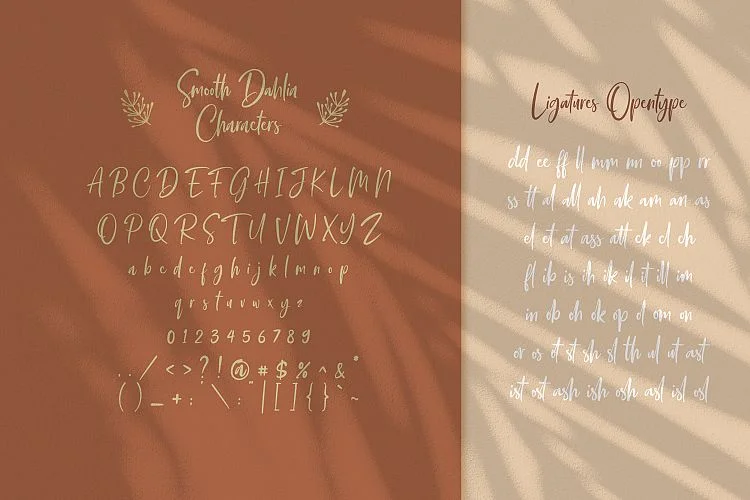 Smooth Dahlia
Characters
A B C D E F G H I J K L M N
O P Q R S T U V W X Y Z
a b c d e f g h i j k l m n o p
q r s t u v w x y z
0 1 2 3 4 5 6 7 8 9
. , / < > ? ! @ # $ % ^ & *
( ) _ + : " \ : | [ ] { } ` ~
Ligatures Opentype
dd ee ff ll mm nn oo pp rr
ss tt al all ah ak am an as
el et at ass att ck cl ch
fl ib is ih ik il it ill im
in ob oh ok op ol om on
or os et st sh sl th ul ut ast
ist ost ash ish osh asl isl osl